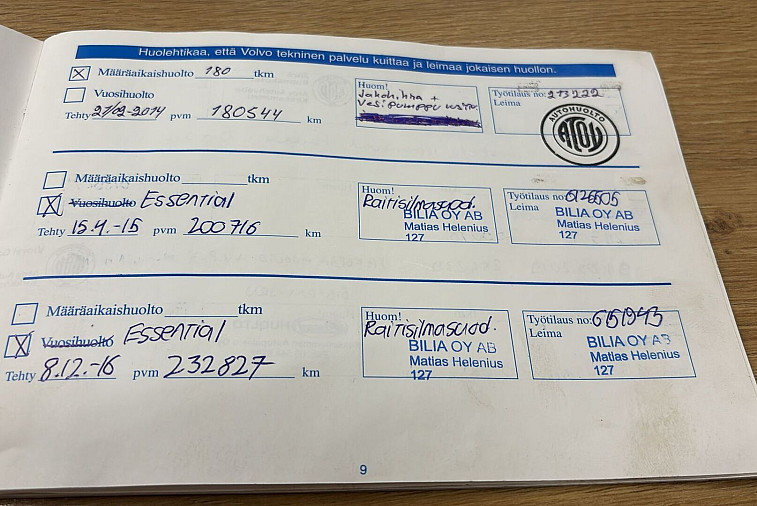 Huolehtikaa, että Volvo tekninen palvelu kuittaa ja leimaa jokaisen huollon.
☒ Määräaikaishuolto 180 tkm
☐ Vuosihuolto
Tehty 21/02-2014 pvm 180544 km
Huom!
Jakohihna +
Vesipumppu
Työtilaus no: 213222
Leima
AUTOHUOLTO
ATOY
☐ Määräaikaishuolto tkm
☒ Vuosihuolto Essential
Tehty 15.4.-15 pvm 200716 km
Huom!
Raitisilmasuod.
BILIA OY AB
Matias Helenius
127
Työtilaus no:
Leima
BILIA OY AB
Matias Helenius
127
☐ Määräaikaishuolto tkm
☒ Vuosihuolto Essential
Tehty 8.12.-16 pvm 232827 km
Huom!
Raitisilmasuod.
BILIA OY AB
Matias Helenius
127
Työtilaus no:
Leima
BILIA OY AB
Matias Helenius
127
9